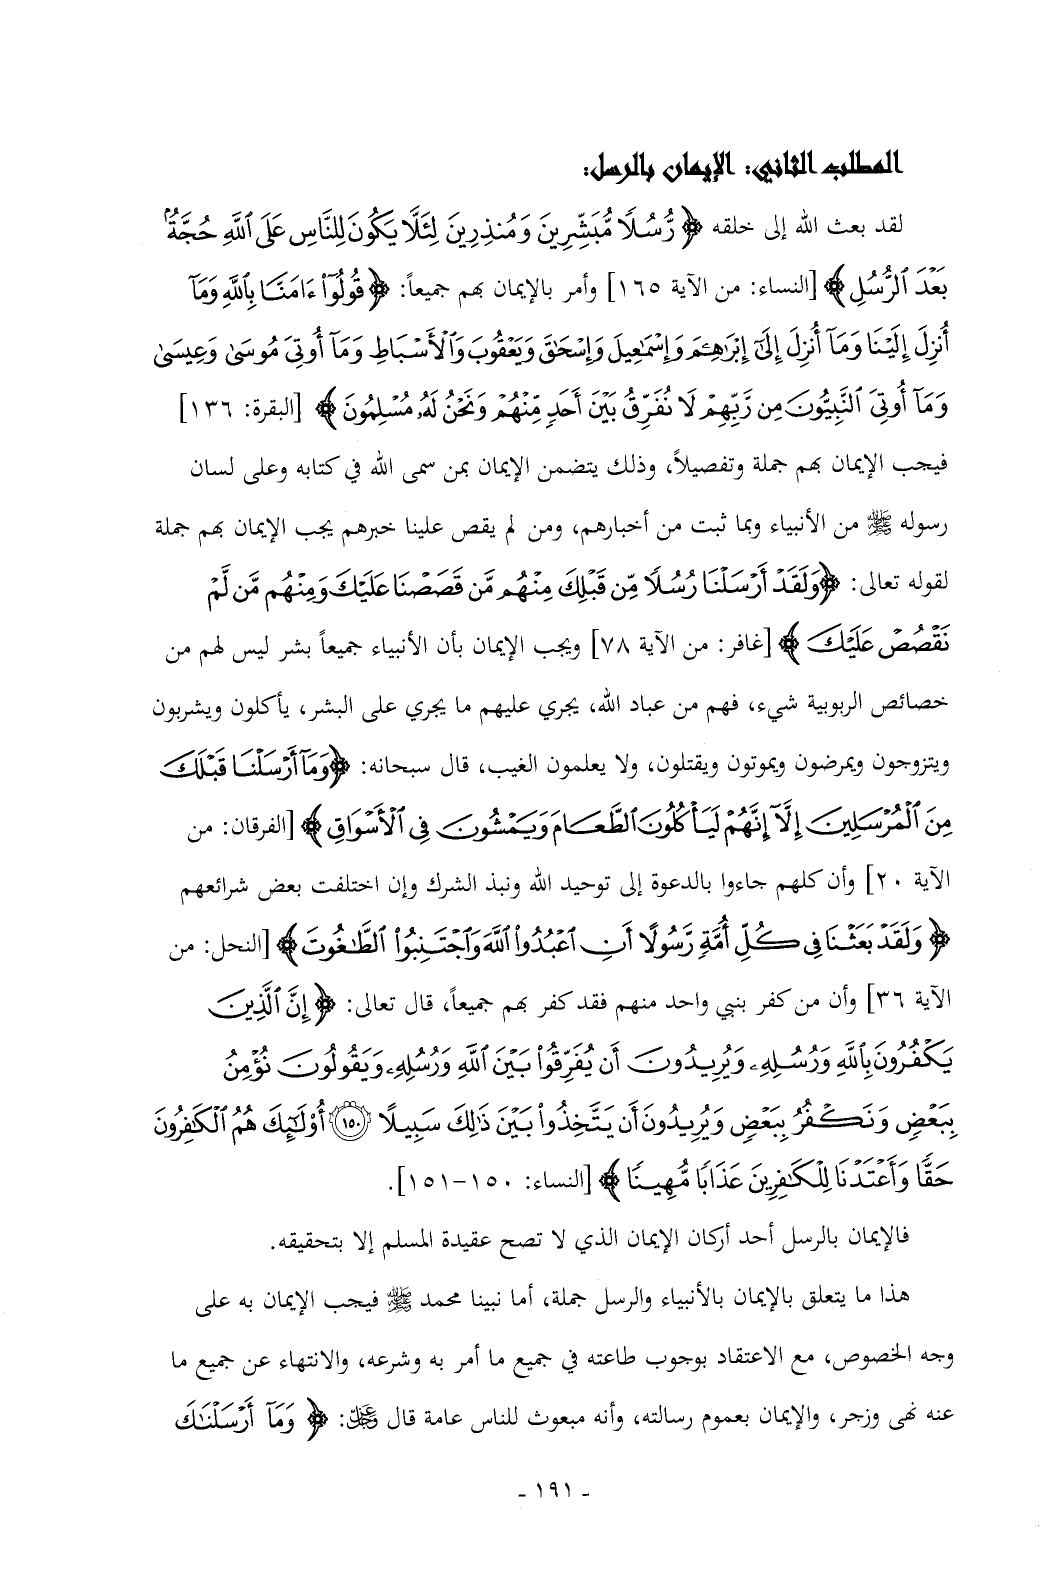 المطلب الثاني: الإيمان بالرسل:
لقد بعث الله إلى خلقه ﴿ رُّسُلًا مُّبَشِّرِينَ وَمُنذِرِينَ لِئَلَّا يَكُونَ لِلنَّاسِ عَلَى ٱللَّهِ حُجَّةٌۢ
بَعْدَ ٱلرُّسُلِ ﴾ [النساء: من الآية ١٦٥] وأمر بالإيمان بهم جميعاً: ﴿ قُولُوٓا۟ ءَامَنَّا بِٱللَّهِ وَمَآ
أُنزِلَ إِلَيْنَا وَمَآ أُنزِلَ إِلَىٰٓ إِبْرَٰهِـۧمَ وَإِسْمَـٰعِيلَ وَإِسْحَـٰقَ وَيَعْقُوبَ وَٱلْأَسْبَاطِ وَمَآ أُوتِىَ مُوسَىٰ وَعِيسَىٰ
وَمَآ أُوتِىَ ٱلنَّبِيُّونَ مِن رَّبِّهِمْ لَا نُفَرِّقُ بَيْنَ أَحَدٍ مِّنْهُمْ وَنَحْنُ لَهُۥ مُسْلِمُونَ ﴾ [البقرة: ١٣٦]
فيجب الإيمان بهم جملة وتفصيلاً، وذلك يتضمن الإيمان بمن سمى الله في كتابه وعلى لسان
رسوله ﷺ من الأنبياء وبما ثبت من أخبارهم، ومن لم يقص علينا خبرهم يجب الإيمان بهم جملة
لقوله تعالى: ﴿وَلَقَدْ أَرْسَلْنَا رُسُلًا مِّن قَبْلِكَ مِنْهُم مَّن قَصَصْنَا عَلَيْكَ وَمِنْهُم مَّن لَّمْ
نَقْصُصْ عَلَيْكَ ﴾ [غافر: من الآية ٧٨] ويجب الإيمان بأن الأنبياء جميعاً بشر ليس لهم من
خصائص الربوبية شيء، فهم من عباد الله، يجري عليهم ما يجري على البشر، يأكلون ويشربون
ويتزوجون ويمرضون ويموتون ويقتلون، ولا يعلمون الغيب، قال سبحانه: ﴿وَمَآ أَرْسَلْنَا قَبْلَكَ
مِنَ ٱلْمُرْسَلِينَ إِلَّآ إِنَّهُمْ لَيَأْكُلُونَ ٱلطَّعَامَ وَيَمْشُونَ فِى ٱلْأَسْوَاقِ ﴾ [الفرقان: من
الآية ٢٠] وأن كلهم جاءوا بالدعوة إلى توحيد الله ونبذ الشرك وإن اختلفت بعض شرائعهم
﴿ وَلَقَدْ بَعَثْنَا فِى كُلِّ أُمَّةٍ رَّسُولًا أَنِ ٱعْبُدُوا۟ ٱللَّهَ وَٱجْتَنِبُوا۟ ٱلطَّـٰغُوتَ ﴾ [النحل: من
الآية ٣٦] وأن من كفر بنبي واحد منهم فقد كفر بهم جميعاً، قال تعالى: ﴿ إِنَّ ٱلَّذِينَ
يَكْفُرُونَ بِٱللَّهِ وَرُسُلِهِۦ وَيُرِيدُونَ أَن يُفَرِّقُوا۟ بَيْنَ ٱللَّهِ وَرُسُلِهِۦ وَيَقُولُونَ نُؤْمِنُ
بِبَعْضٍ وَنَكْفُرُ بِبَعْضٍ وَيُرِيدُونَ أَن يَتَّخِذُوا۟ بَيْنَ ذَٰلِكَ سَبِيلًا ١٥٠ أُو۟لَـٰٓئِكَ هُمُ ٱلْكَـٰفِرُونَ
حَقًّا وَأَعْتَدْنَا لِلْكَـٰفِرِينَ عَذَابًا مُّهِينًا ﴾ [النساء: ١٥٠-١٥١].
فالإيمان بالرسل أحد أركان الإيمان الذي لا تصح عقيدة المسلم إلا بتحقيقه.
هذا ما يتعلق بالإيمان بالأنبياء والرسل جملة، أما نبينا محمد ﷺ فيجب الإيمان به على
وجه الخصوص، مع الاعتقاد بوجوب طاعته في جميع ما أمر به وشرعه، والانتهاء عن جميع ما
عنه نهى وزجر، والإيمان بعموم رسالته، وأنه مبعوث للناس عامة قال ﷻ: ﴿ وَمَآ أَرْسَلْنَـٰكَ
- ١٩١ -